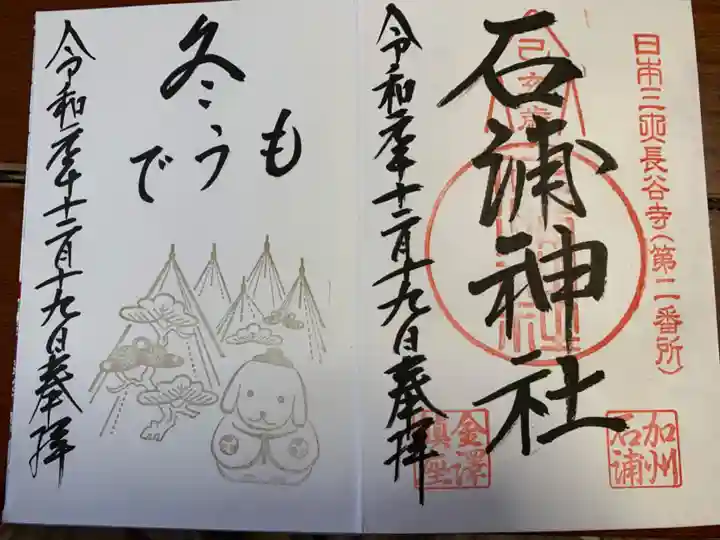 日本三大長谷寺(第二番所)
己亥歳
石浦神社
加州
石浦
金澤
鎮座
令和元年十二月十九日奉拝
も
うう
冬で
令和元年十二月十九日奉拝